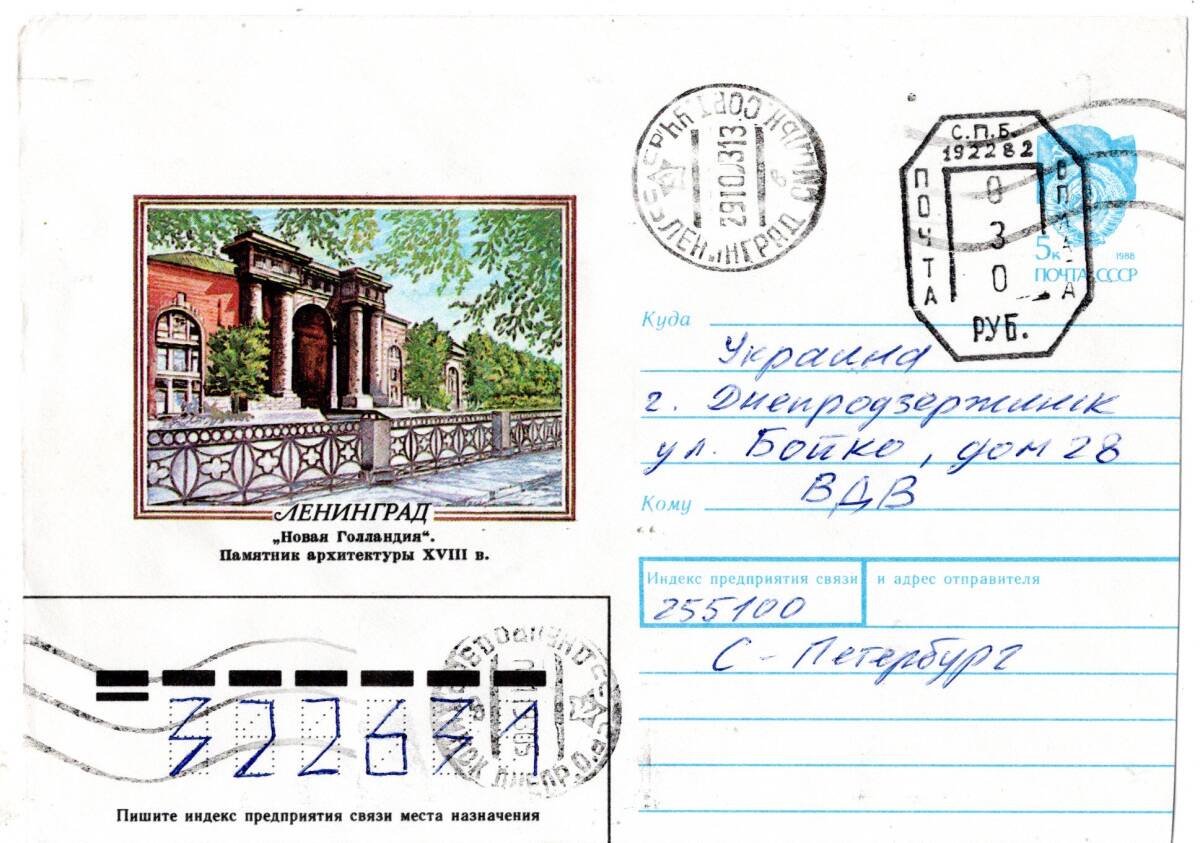 ЛЕНИНГРАД
„Новая Голландия“.
Памятник архитектуры XVIII в.
ЛЕНИНГРАД
С.П.Б.
192282
ПОЧТА
0
3
0
РУБ.
5к
1988
ПОЧТА СССР
Куда
Украина
г. Днепродзержинск
ул. Бойко, дом 28
Кому
ВДВ
Индекс предприятия связи и адрес отправителя
255100
С-Петербург
322631
Пишите индекс предприятия связи места назначения